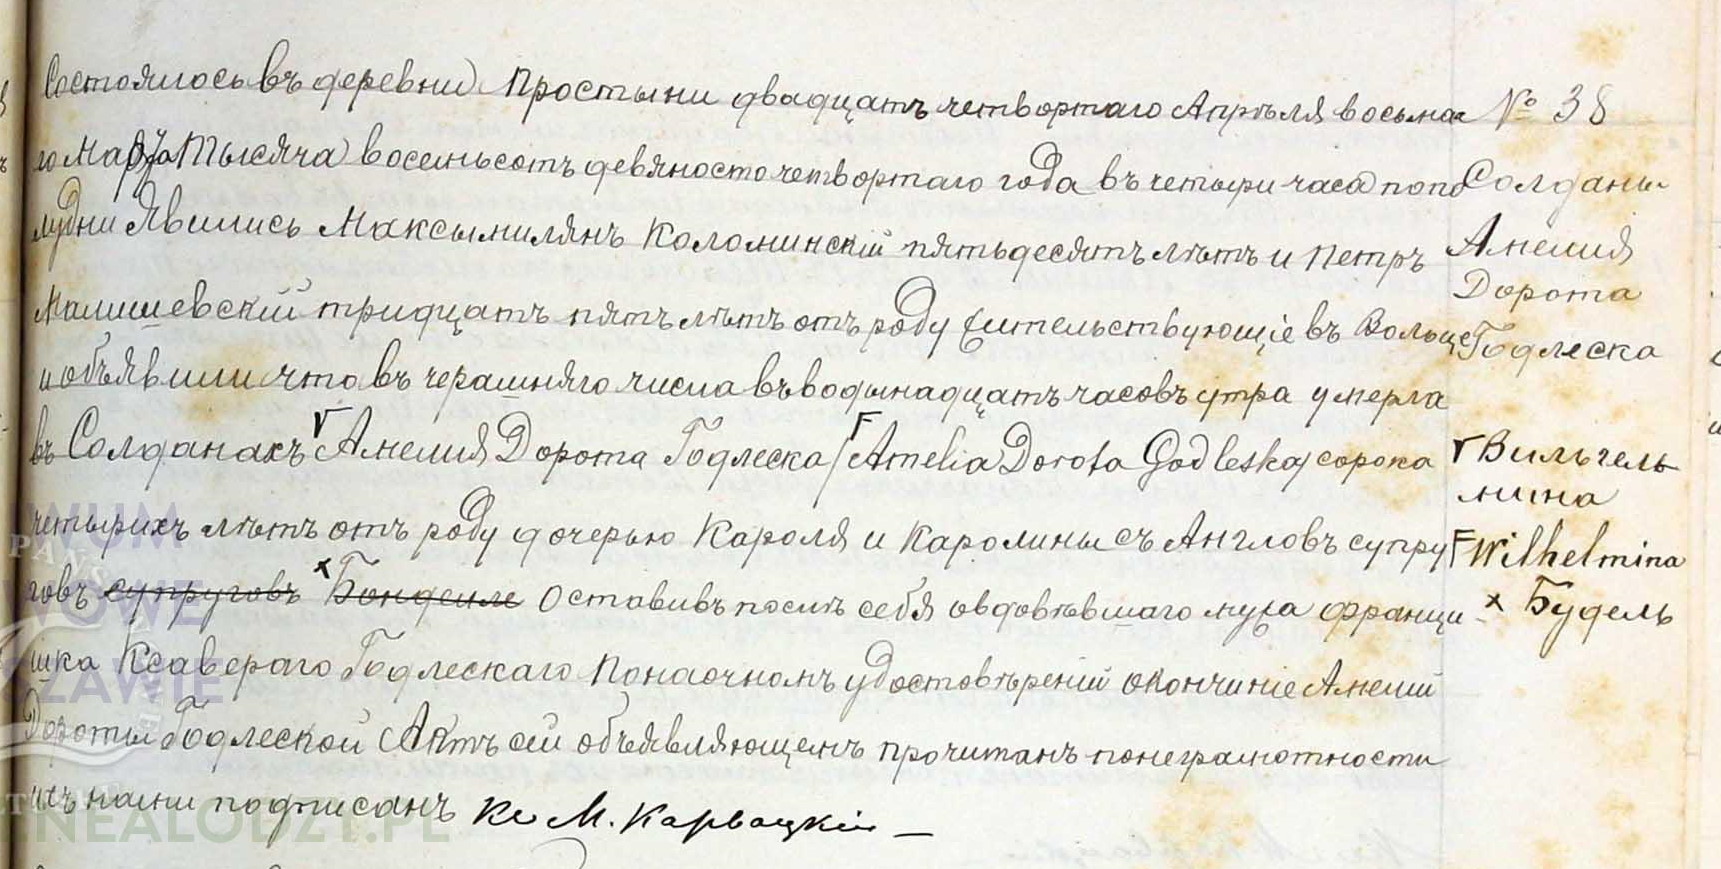 Состоялось въ деревни Простыни двадцать четвортаго Апрѣля восьмаа
го Марта Тысяча восемьсотъ девяносто четвортаго года въ четыри часа попо
лудни Явились Максымилянъ Коломинскій пятьдесятъ лѣтъ и Петръ
Малишевскій тридцать пять лѣтъ отъ роду жительствующіе въ Вольце
и объявили что въ черашняго числа въ водынадцать часовъ утра умерла
въ Солданахъ Амелия Дорота Годлеска /Amelia Dorota Godleska/ сорока
четырихъ лѣтъ отъ роду дочерью Кароля и Каролины съ Англовъ супру
говъ супруговъ Бондеиле Оставивъ послѣ себя овдовѣвшаго мужа Франци
шка Ксавераго Годлескаго Понаочномъ удостовѣреній окончиніе Амелій
Дороты Годлеской Актъ сей объявляющемъ прочитанъ понеграмотности
ихъ нами подписанъ Кс М. Карвацкій —
№ 38
Солданы
Амелия
Дорота
Годлеска
Вильгель
мина
Wilhelmina
x Будель
WUM
PAŃS
WOWE
ZAWIE
NEALODZY.PL